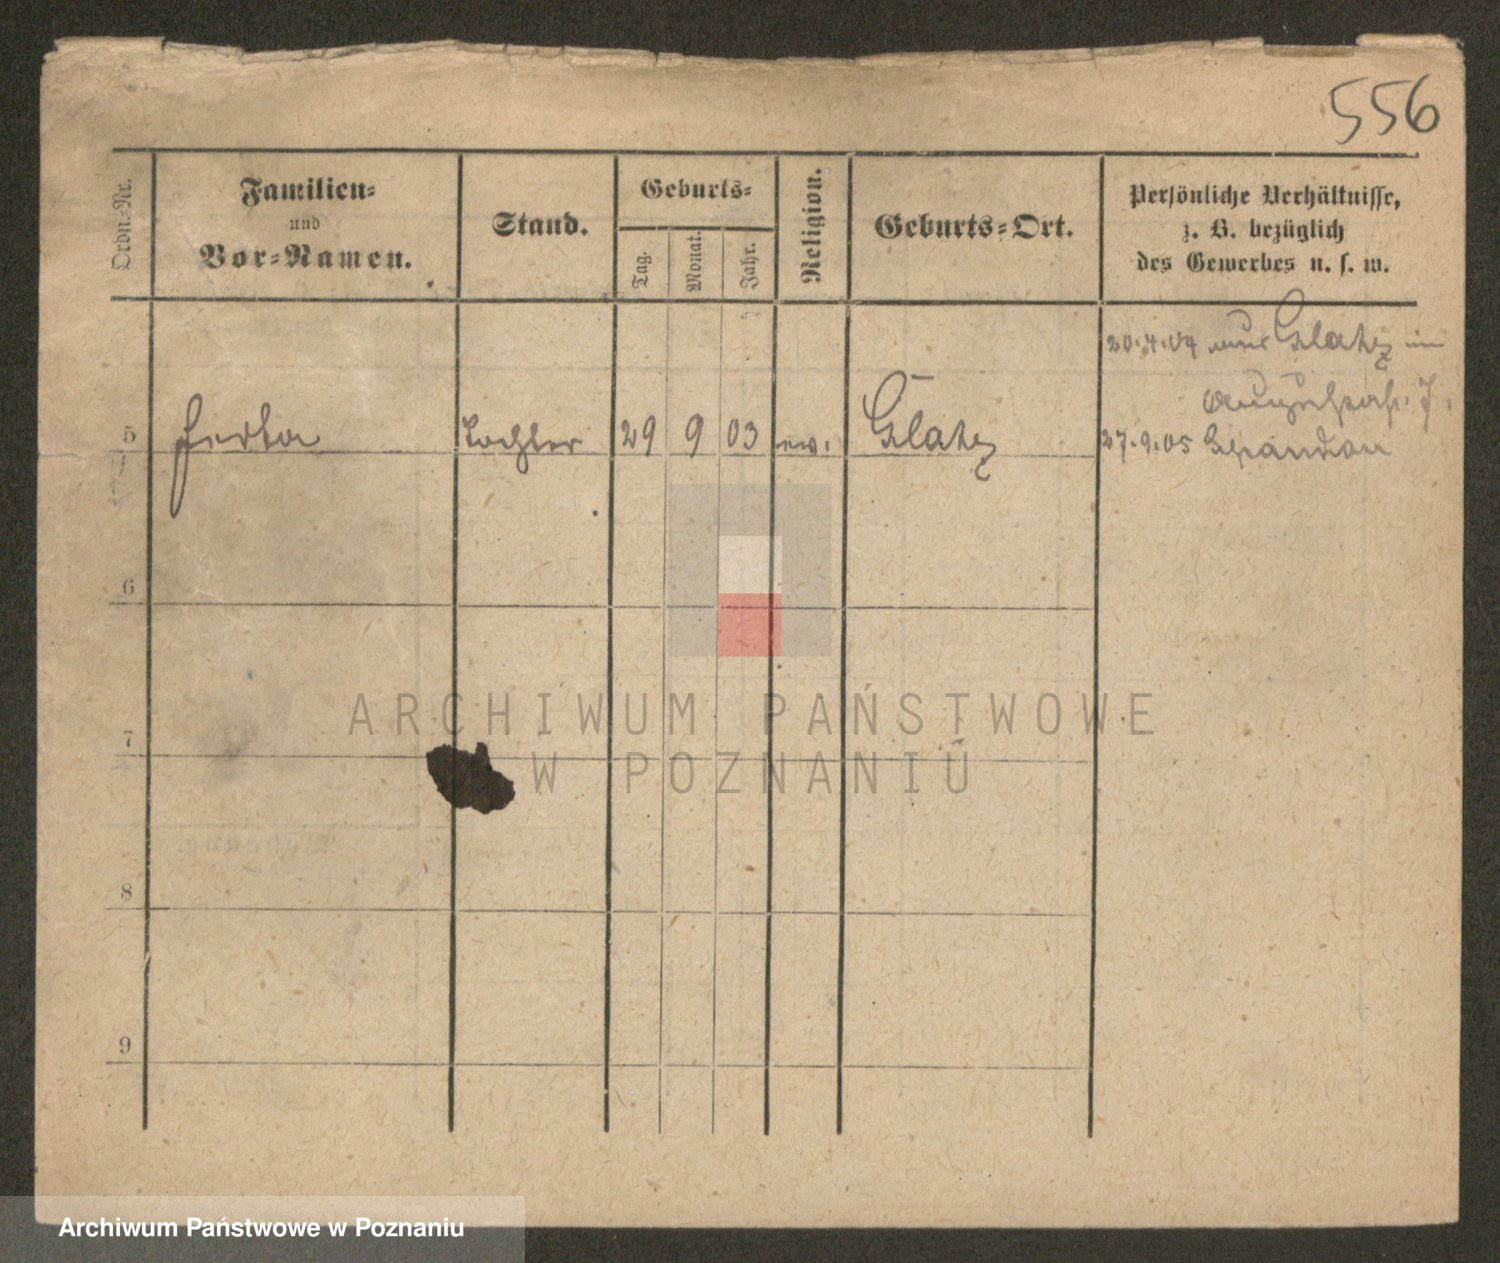 556
Ordn.-Nr.
Familien-
und
Vor-Namen.
Stand.
Geburts-
Tag.
Monat.
Jahr.
Religion.
Geburts-Ort.
Persönliche Verhältnisse,
z. B. bezüglich
des Gewerbes u. s. w.
20.4.04 aus Glatz in
5 Herta Tochter 29 9 03 ev. Glatz 27.9.05 Spandau
6
7
8
9
ARCHIWUM PAŃSTWOWE
W POZNANIU
Archiwum Państwowe w Poznaniu